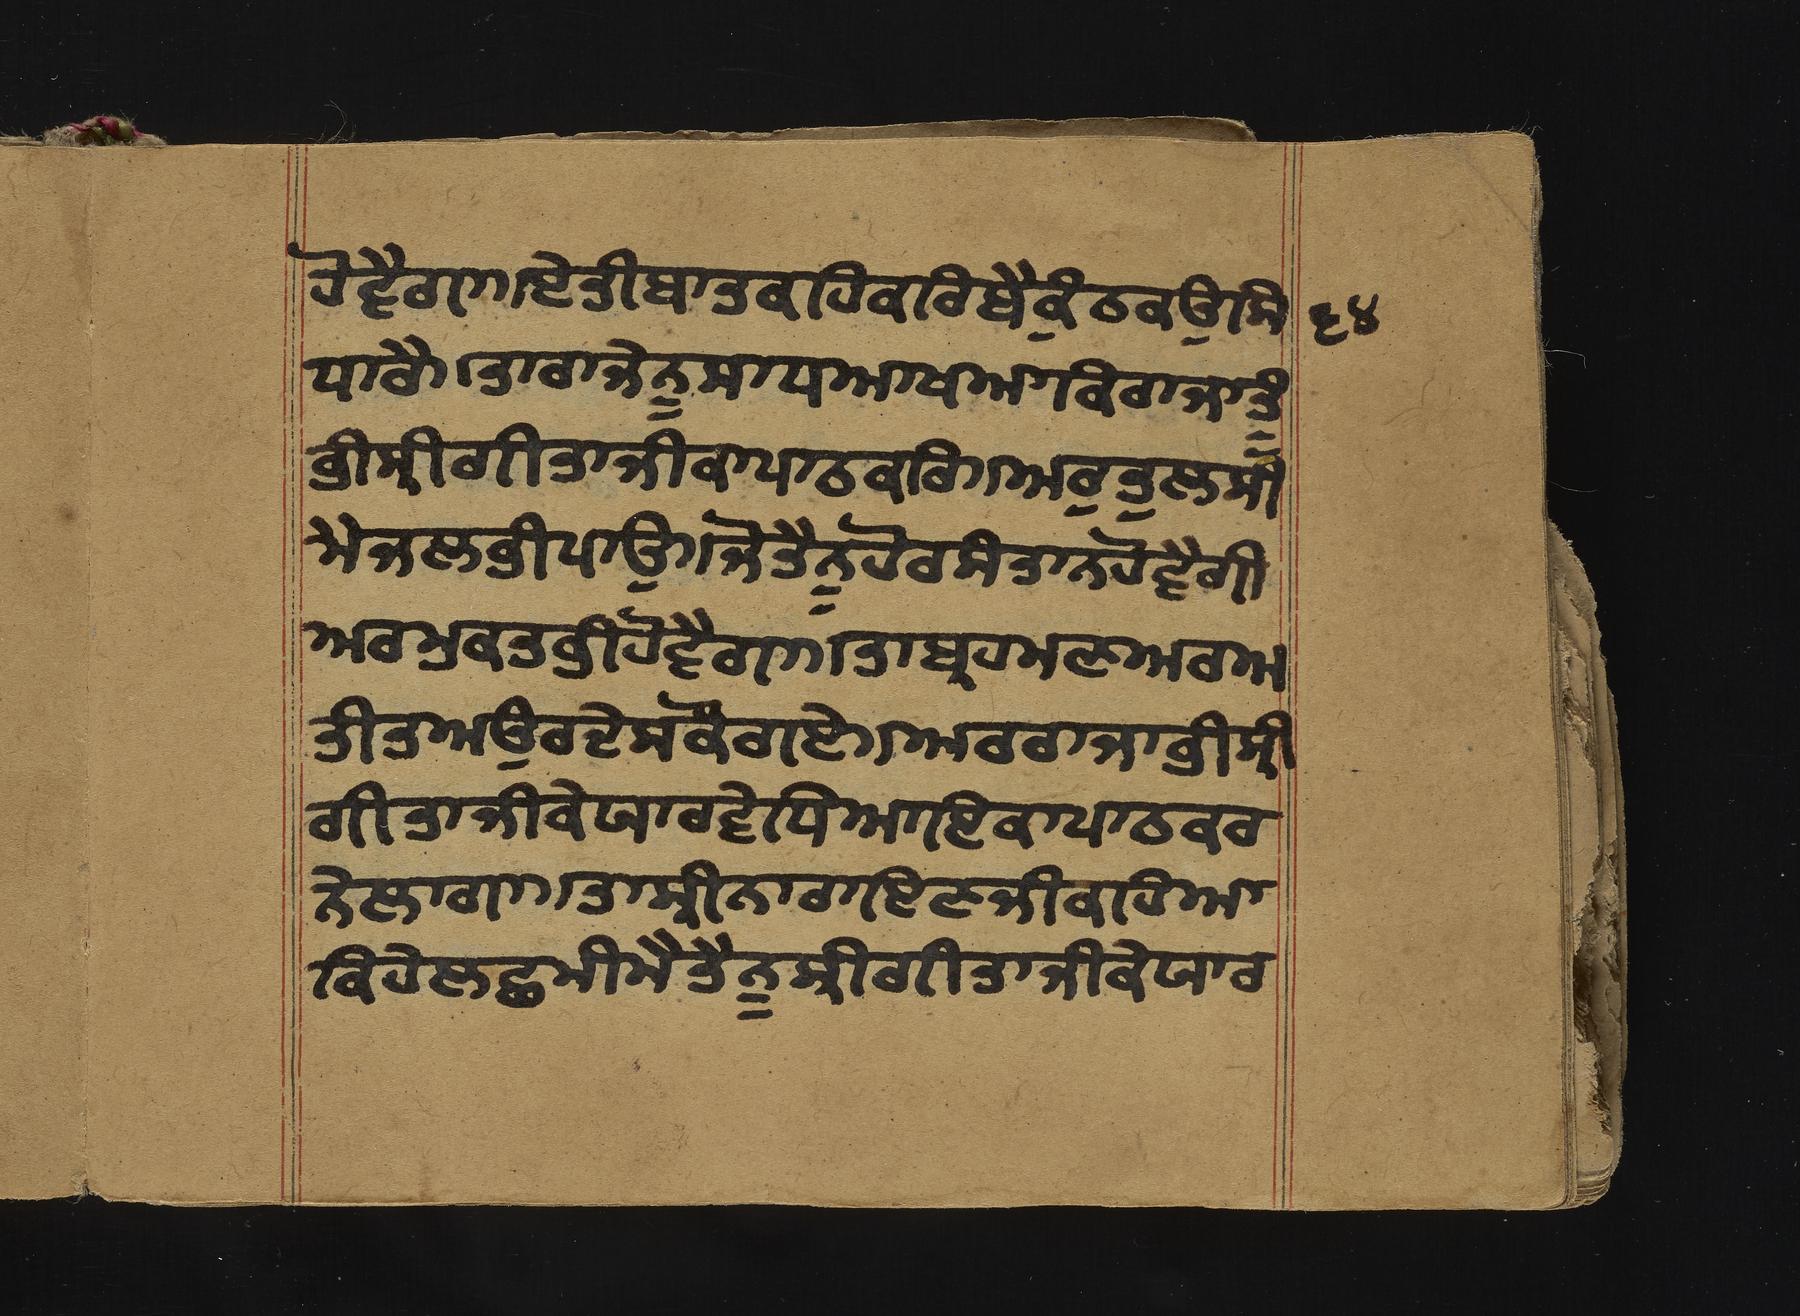 ਹੋਵੈਗਾ।ਏਤੀਬਾਤਕਹਿਕਰਿਬੈਕੁੰਠਕਉਸਿ ੬੪
ਧਾਰੇ।ਤਾਰਾਜੇਨੂਸਾਧਆਖਆਕਿਰਾਜਾਤੂੰ
ਭੀਸ੍ਰੀਗੀਤਾਜੀਕਾਪਾਠਕਰਿ।ਅਰੁਤੁਲਸੀ
ਮੇਜਲਭੀਪਾਉ।ਜੋਤੈਨੂਹੋਰਸੰਤਾਨਹੋਵੈਗੀ
ਅਰਮੁਕਤਭੀਹੋਵੈਗਾ।ਤਾਬ੍ਰਹਮਣਅਰਅ
ਤੀਤਅਉਰਦੇਸਕੌਗਏ।ਅਰਰਾਜਾਭੀਸ੍ਰੀ
ਗੀਤਾਜੀਕੇਯਾਰਵੇਧਿਆਇਕਾਪਾਠਕਰ
ਨੇਲਾਗਾ।ਤਾਸ੍ਰੀਨਾਰਾਇਣਜੀਕਹਿਆ
ਕਿਹੇਲਛਮੀਮੈਤੈਨੂਸ੍ਰੀਗੀਤਾਜੀਕੇਯਾਰ